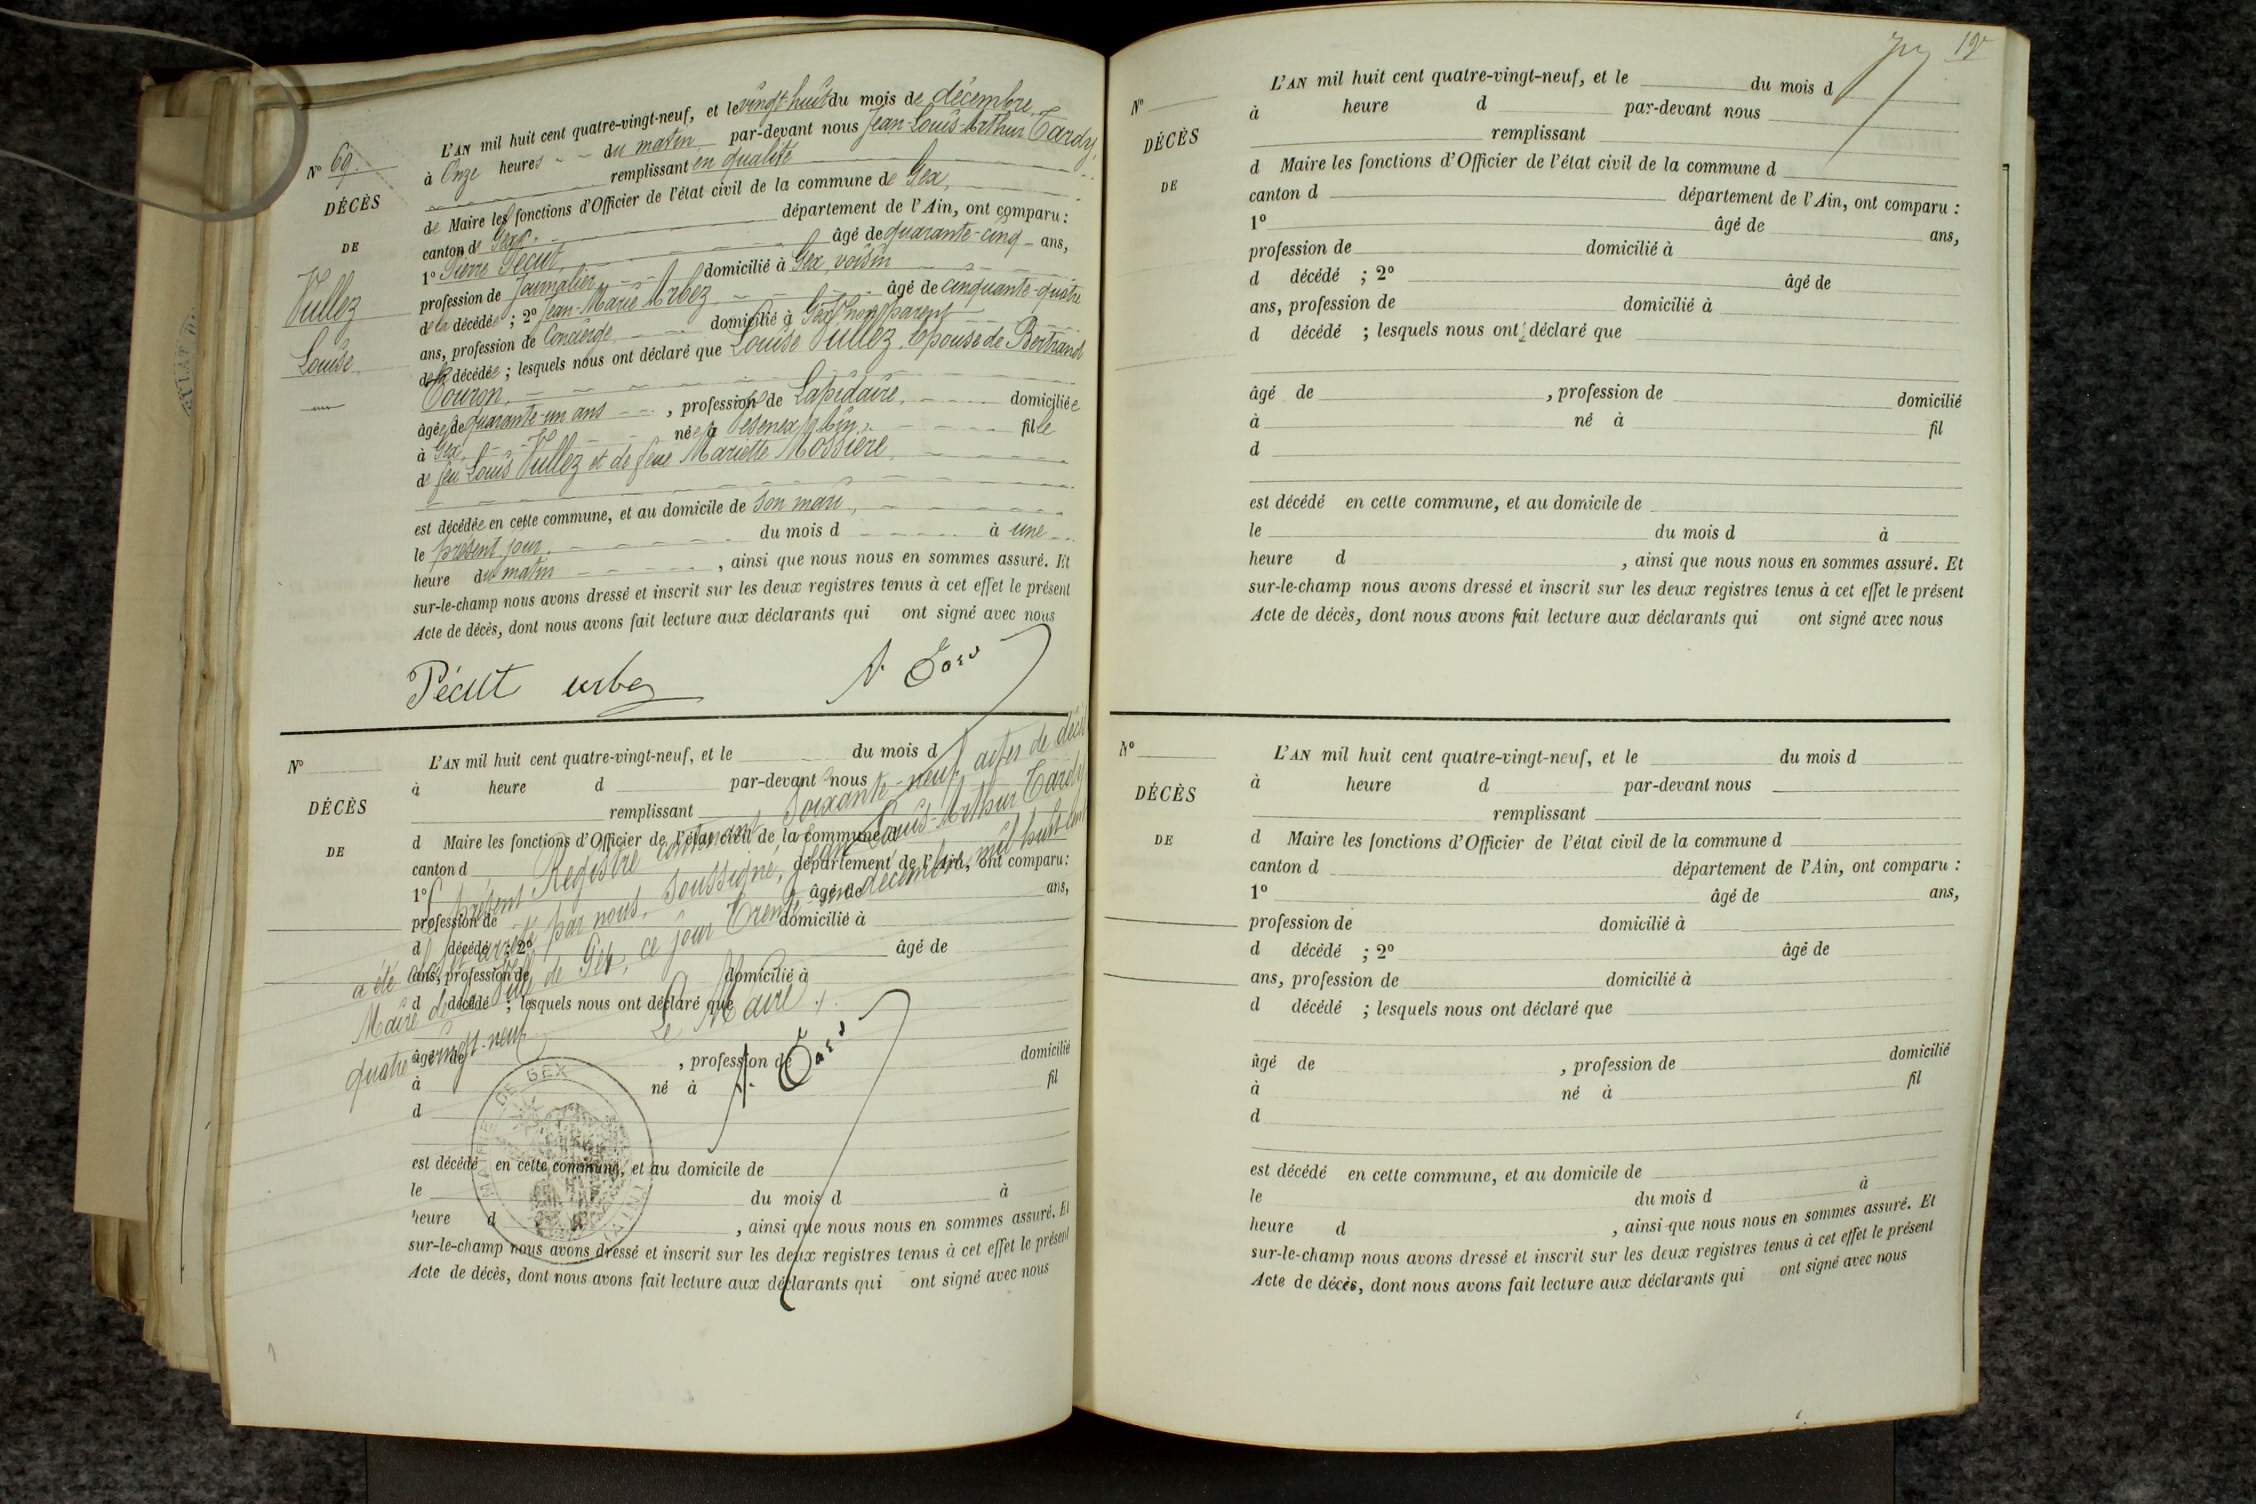 L'AN mil huit cent quatre-vingt-neuf, et le vingt-huit du mois de décembre,
à Onze heures du matin par-devant nous Jean-Louis-Arthur Tardy,
remplissant en qualité
de Maire les fonctions d'Officier de l'état civil de la commune de Gex,
canton de Gex, département de l'Ain, ont comparu :
1° Pierre Pécut, âgé de quarante-cinq ans,
profession de Journalier domicilié à Gex, voisin
de la décédée ; 2° Jean-Marie Arbez âgé de cinquante-quatre
ans, profession de Concierge domicilié à Gex, non parent
de la décédée ; lesquels nous ont déclaré que Louise Vullez, Epouse de Bertrand
Touron,
âgée de quarante-un ans, profession de Lapidaire, domiciliée
à Gex, née à (Ain), fille
de feu Louis Vullez et de feue Mariette Mossière,
est décédée en cette commune, et au domicile de son mari,
le présent jour, du mois d à une
heure du matin, ainsi que nous nous en sommes assuré. Et
sur-le-champ nous avons dressé et inscrit sur les deux registres tenus à cet effet le présent
Acte de décès, dont nous avons fait lecture aux déclarants qui ont signé avec nous
N° 69.
DÉCÈS
DE
Vullez
Louise
Pécut arbez A. Tardy
N°
DÉCÈS
DE
L'AN mil huit cent quatre-vingt-neuf, et le du mois d
à heure d par-devant nous
remplissant
d Maire les fonctions d'Officier de l'état civil de la commune d
canton d département de l'Ain, ont comparu :
1° âgé de ans,
profession de domicilié à
d décédé ; 2° âgé de
ans, profession de domicilié à
d décédé ; lesquels nous ont déclaré que
âgé de , profession de domicilié
à né à fil
d
est décédé en cette commune, et au domicile de
le du mois d à
heure d , ainsi que nous nous en sommes assuré. Et
sur-le-champ nous avons dressé et inscrit sur les deux registres tenus à cet effet le présent
Acte de décès, dont nous avons fait lecture aux déclarants qui ont signé avec nous
présent Registre contenant Soixante-neuf actes de décès
a été clos et arrêté par nous, soussigné, Jean-Louis-Arthur Tardy
Maire de la Ville de Gex, ce jour Trente-un décembre mil huit cent
quatre-vingt-neuf
Le Maire
A. Tardy
MAIRIE DE GEX
19
N°
DÉCÈS
DE
L'AN mil huit cent quatre-vingt-neuf, et le du mois d
à heure d par-devant nous
remplissant
d Maire les fonctions d'Officier de l'état civil de la commune d
canton d département de l'Ain, ont comparu :
1° âgé de ans,
profession de domicilié à
d décédé ; 2° âgé de
ans, profession de domicilié à
d décédé ; lesquels nous ont déclaré que
âgé de , profession de domicilié
à né à fil
d
est décédé en cette commune, et au domicile de
le du mois d à
heure d , ainsi que nous nous en sommes assuré. Et
sur-le-champ nous avons dressé et inscrit sur les deux registres tenus à cet effet le présent
Acte de décès, dont nous avons fait lecture aux déclarants qui ont signé avec nous
N°
DÉCÈS
DE
L'AN mil huit cent quatre-vingt-neuf, et le du mois d
à heure d par-devant nous
remplissant
d Maire les fonctions d'Officier de l'état civil de la commune d
canton d département de l'Ain, ont comparu :
1° âgé de ans,
profession de domicilié à
d décédé ; 2° âgé de
ans, profession de domicilié à
d décédé ; lesquels nous ont déclaré que
âgé de , profession de domicilié
à né à fil
d
est décédé en cette commune, et au domicile de
le du mois d à
heure d , ainsi que nous nous en sommes assuré. Et
sur-le-champ nous avons dressé et inscrit sur les deux registres tenus à cet effet le présent
Acte de décès, dont nous avons fait lecture aux déclarants qui ont signé avec nous